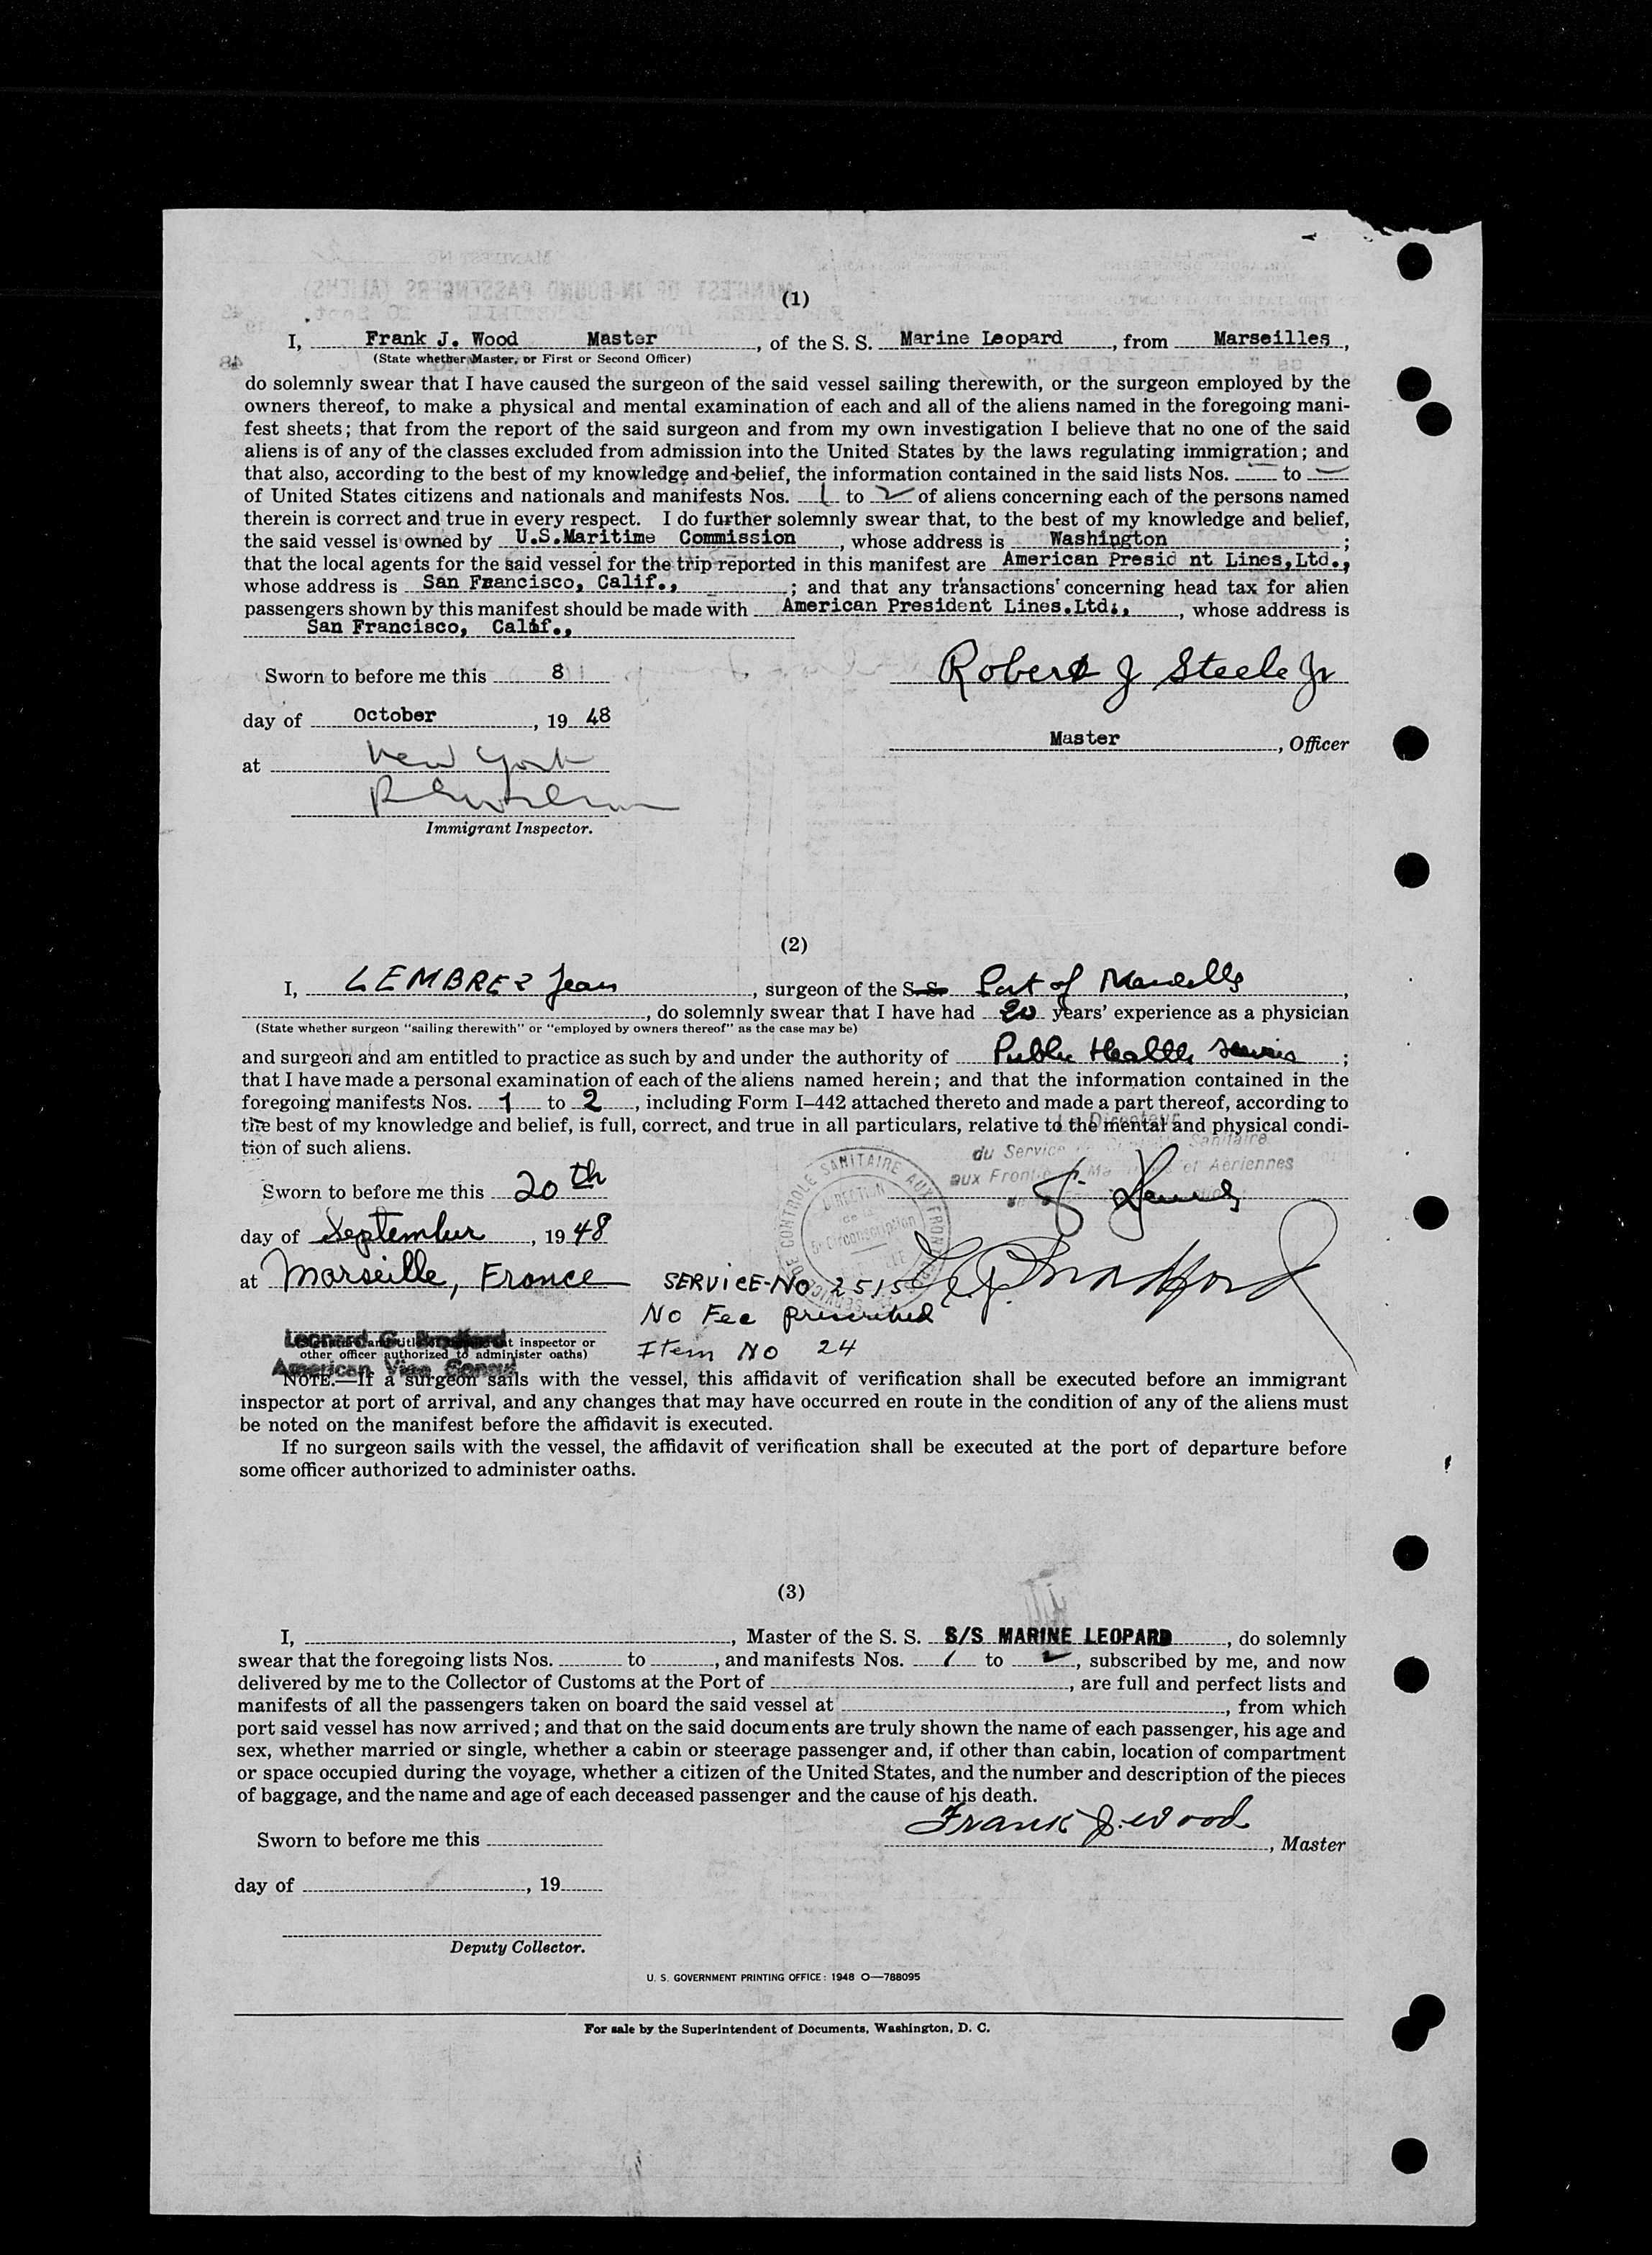 (1)
I, Frank J. Wood Master, of the S. S. Marine Leopard, from Marseilles,
(State whether Master, or First or Second Officer)
do solemnly swear that I have caused the surgeon of the said vessel sailing therewith, or the surgeon employed by the
owners thereof, to make a physical and mental examination of each and all of the aliens named in the foregoing mani-
fest sheets; that from the report of the said surgeon and from my own investigation I believe that no one of the said
aliens is of any of the classes excluded from admission into the United States by the laws regulating immigration; and
that also, according to the best of my knowledge and belief, the information contained in the said lists Nos. — to —
of United States citizens and nationals and manifests Nos. 1 to 2 of aliens concerning each of the persons named
therein is correct and true in every respect. I do further solemnly swear that, to the best of my knowledge and belief,
the said vessel is owned by U.S.Maritime Commission, whose address is Washington;
that the local agents for the said vessel for the trip reported in this manifest are American Presid nt Lines,Ltd.,
whose address is San Francisco, Calif.,; and that any transactions concerning head tax for alien
passengers shown by this manifest should be made with American President Lines.Ltd., whose address is
San Francisco, Calif.,
Sworn to before me this 8
Robert J Steele Jr
day of October, 19 48
Master, Officer
at New York
Immigrant Inspector.
(2)
I, LEMBREZ Jean, surgeon of the S. S. Port of Marseille,
, do solemnly swear that I have had 20 years' experience as a physician
(State whether surgeon "sailing therewith" or "employed by owners thereof" as the case may be)
and surgeon and am entitled to practice as such by and under the authority of Public Health Service;
that I have made a personal examination of each of the aliens named herein; and that the information contained in the
foregoing manifests Nos. 1 to 2, including Form I–442 attached thereto and made a part thereof, according to
the best of my knowledge and belief, is full, correct, and true in all particulars, relative to the mental and physical condi-
tion of such aliens.
Le Directeur
du Service Sanitaire
aux Front Ma et Aériennes
SERVICE DE CONTROLE SANITAIRE AUX FRONT
DIRECTION
Circonscription
Sworn to before me this 20th
day of September, 19 48
at Marseille, France
SERVICE-NO 2515
L. G. Bradford
No Fee prescribed
Item No 24
Leonard G. Bradford
American Vice Consul
inspector or
other officer authorized to administer oaths)
NOTE.—If a surgeon sails with the vessel, this affidavit of verification shall be executed before an immigrant
inspector at port of arrival, and any changes that may have occurred en route in the condition of any of the aliens must
be noted on the manifest before the affidavit is executed.
If no surgeon sails with the vessel, the affidavit of verification shall be executed at the port of departure before
some officer authorized to administer oaths.
(3)
I, , Master of the S. S. S/S MARINE LEOPARD, do solemnly
swear that the foregoing lists Nos. to , and manifests Nos. 1 to 2, subscribed by me, and now
delivered by me to the Collector of Customs at the Port of , are full and perfect lists and
manifests of all the passengers taken on board the said vessel at , from which
port said vessel has now arrived; and that on the said documents are truly shown the name of each passenger, his age and
sex, whether married or single, whether a cabin or steerage passenger and, if other than cabin, location of compartment
or space occupied during the voyage, whether a citizen of the United States, and the number and description of the pieces
of baggage, and the name and age of each deceased passenger and the cause of his death.
Frank J. Wood
Sworn to before me this
, Master
day of , 19
Deputy Collector.
U. S. GOVERNMENT PRINTING OFFICE: 1948 O—788095
For sale by the Superintendent of Documents, Washington, D. C.